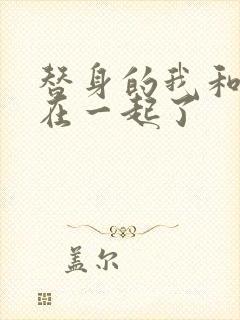 替身的我和
在一起了
盖尔